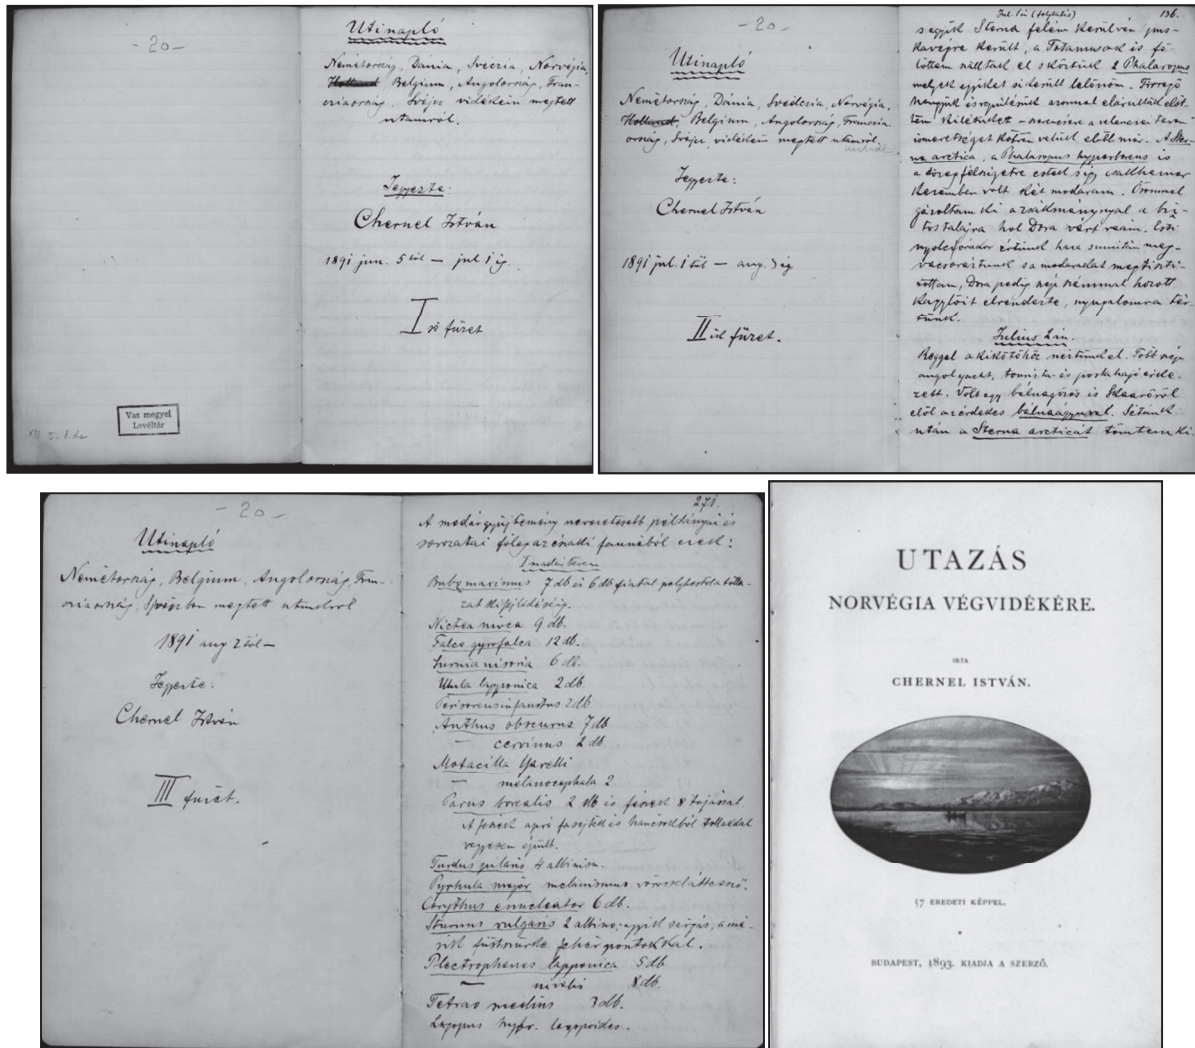 - 20 -
Utinapló
Németország, Dánia, Svéczia, Norvégia,
Holland Belgium, Angolország, Fran-
cziaország, Svájcz vidékein megtett
utamról.
Jegyezte:
Chernel István
1891 jun. 5től – jul 1 ig.
I ső füzet
Vas megyei
Levéltár
XII 5. 1. dz
- 20 -
Utinapló
Németország, Dánia, Svédczia, Norvégia,
Holland, Belgium, Angolország, Franczia
ország, Svájcz, vidékein megtett utamról.
Jegyezte:
Chernel István
1891 jul. 1 től – aug. 3 ig
II ik füzet.
Jul 1én (folytatás) 136.
s egyik Sterna felém kerülvén pus-
kavégre került, a Totanusok is fö-
löttem szálltak el s köztük 2 Phalaropus
melyek egyikét sikerült lelőnöm.
ismeretséget kötni velük elöl már. A Ster-
na arctica, a Phalaropus hyperboreus is
a közép félszigetre estek s így
kezemben volt két madaram. Örömmel
gázoltam ki a zsákmánynyal a biz-
tos talajra hol Dora várt reám. Esti
nyolcz órakor értünk haza smintán meg-
vacsoráztunk s a madarakat megtiszti-
tottam, Dora pedig
kagylóit elrendezte, nyugalomra tér-
tünk.
Julius 2án.
Reggel a kikötőhöz néztünk el. Több
angol yacht, tourista- és postahajó érke-
zett. Volt egy bálnagőzös is Skaarőről
elöl az érdekes bálnaágyúval. Sétánk
után a Sterna arcticát tömtem ki.
- 20 -
Utinapló
Németország, Belgium, Angolország, Fran-
cziaország, Svájczban megtett utamról
1891 aug 2től –
Jegyezte:
Chernel István
III füzet.
271.
A madárgyűjtemény nevezetesebb példányai és
sorozatai főleg az északi faunából ezek:
Bubo maximus 7 db és 6 db fiatal
Nictea nivea 9 db.
Falco gyrofalco 12 db.
Surnia nisoria 6 db.
Ulula lapponica 2 db.
Perisoreus infaustus 2 db
Anthus obscurus 7 db
— cervinus 2 db
Motacilla Yarelli
— melanocephala 2
Parus borealis 2 db és fészek 8 tojással
A fészek apró
vegyesen épült.
Turdus pilaris 4 albinism.
Pyrhula major melanismus
Corythus enucleator 6 db.
Sturnus vulgaris 2 albino: egyik sárgás, a má-
sik füstszürke fehér pontokkal.
Plectrophanes lapponica 5 db
— nivalis 8 db.
Tetrao medius 3 db.
Lagopus hybr. lagopoides.
UTAZÁS
NORVÉGIA VÉGVIDÉKÉRE.
IRTA
CHERNEL ISTVÁN.
57 EREDETI KÉPPEL.
BUDAPEST, 1893. KIADJA A SZERZŐ.